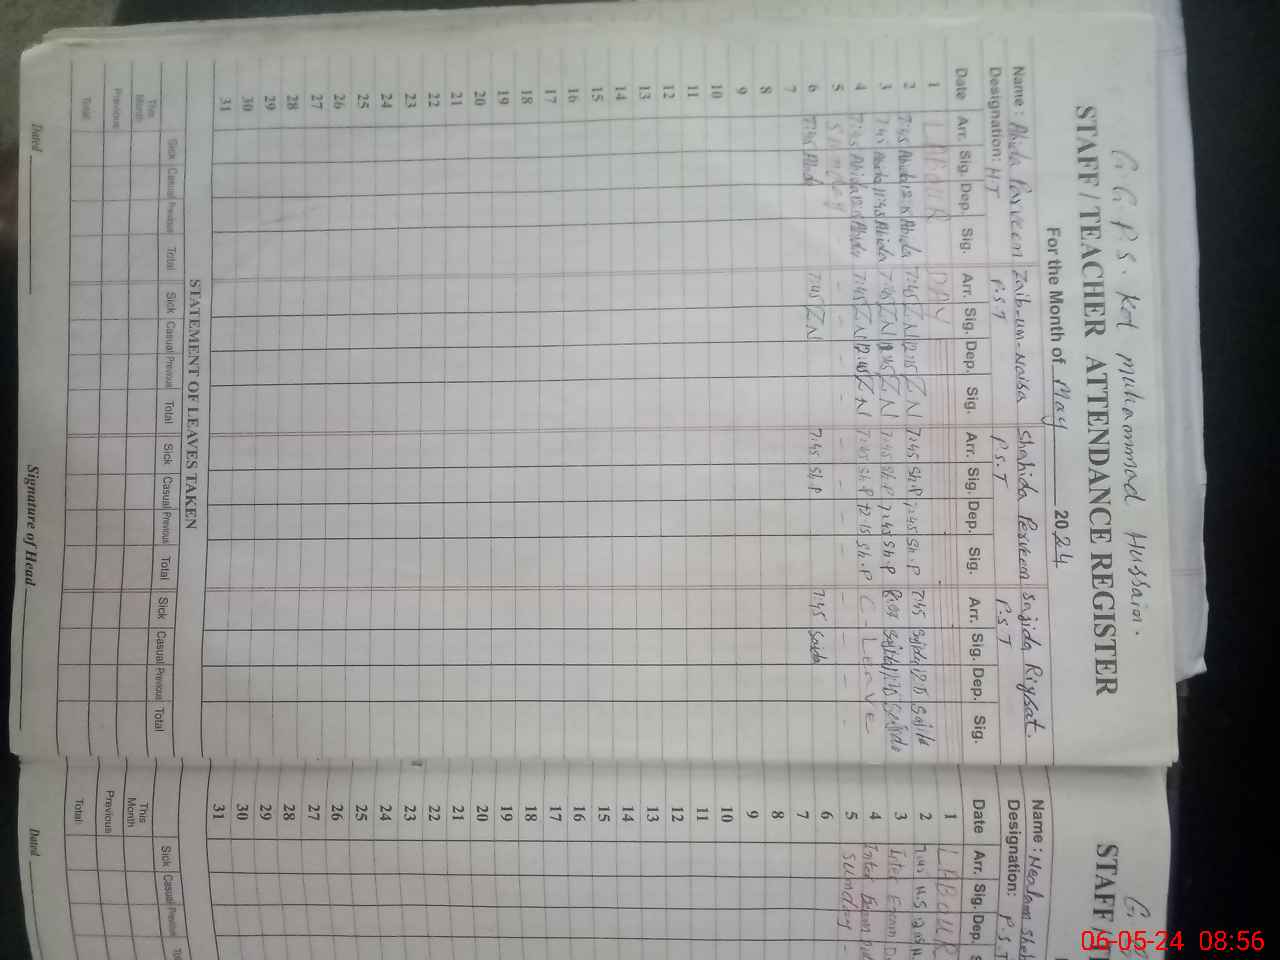 G. G. P. S. Kot Muhammad Hussain.
STAFF / TEACHER ATTENDANCE REGISTER
For the Month of May 2024
Name : Abida Parveen Zaib-un-Naisa Shahida Perveen Sajida Riysat.
Designation: HT P.S.T P.S.T P.S.T
Date Arr. Sig. Dep. Sig. Arr. Sig. Dep. Sig. Arr. Sig. Dep. Sig. Arr. Sig. Dep. Sig.
1 LABOUR DAY
2 7:45 Abida Abida 7:45 ZN 12:15 ZN 7:45 Sh.P Sh.P 7:45 Sajida
3 7:45 Abida 11:45 Abida 7:45 ZN ZN 7:45 Sh.P Sh.P Sajida
4 7:45 Abida Abida 7:45 ZN 12:15 ZN 7:45 Sh.P 12:15 Sh.P C - Leave
5 Sunday - - - - - - - - - - - -
6 7:45 Abida 7:45 ZN 7:45 Sh.P 7:45
7
8
9
10
11
12
13
14
15
16
17
18
19
20
21
22
23
24
25
26
27
28
29
30
31
STATEMENT OF LEAVES TAKEN
Sick Casual Previous Total Sick Casual Previous Total Sick Casual Previous Total Sick Casual Previous Total
This Month
Previous
Total
Dated Signature of Head
STAFF / TE
Name : Neelam
Designation: P.S.T
Date Arr. Sig. Dep.
1 LABOUR
2 7:45 N.S
3 Inter Exam
4 Inter Exam
5 Sunday -
6
7
8
9
10
11
12
13
14
15
16
17
18
19
20
21
22
23
24
25
26
27
28
29
30
31
Sick Casual Previous
This Month
Previous
Total
Dated
06-05-24 08:56